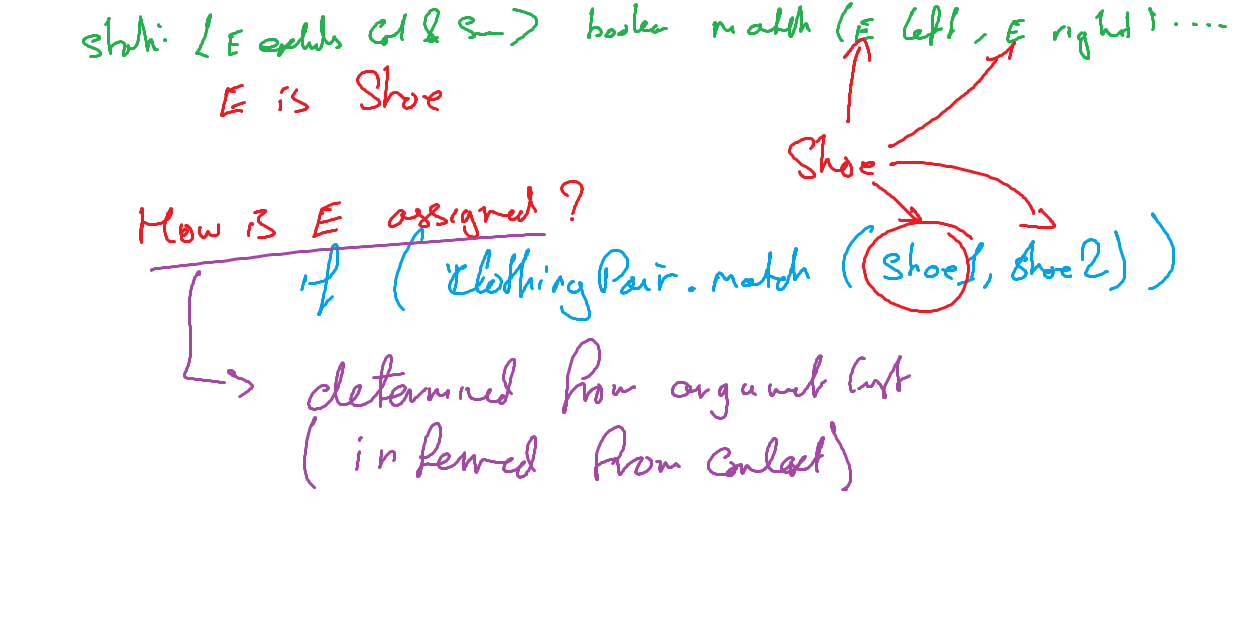 static <E extends Col & Sum> boolean match (E left, E right) ....
E is Shoe
Shoe
How is E assigned ?
if ( ClothingPair.match ( shoe1, shoe2 ) )
determined from argument list
( inferred from context )